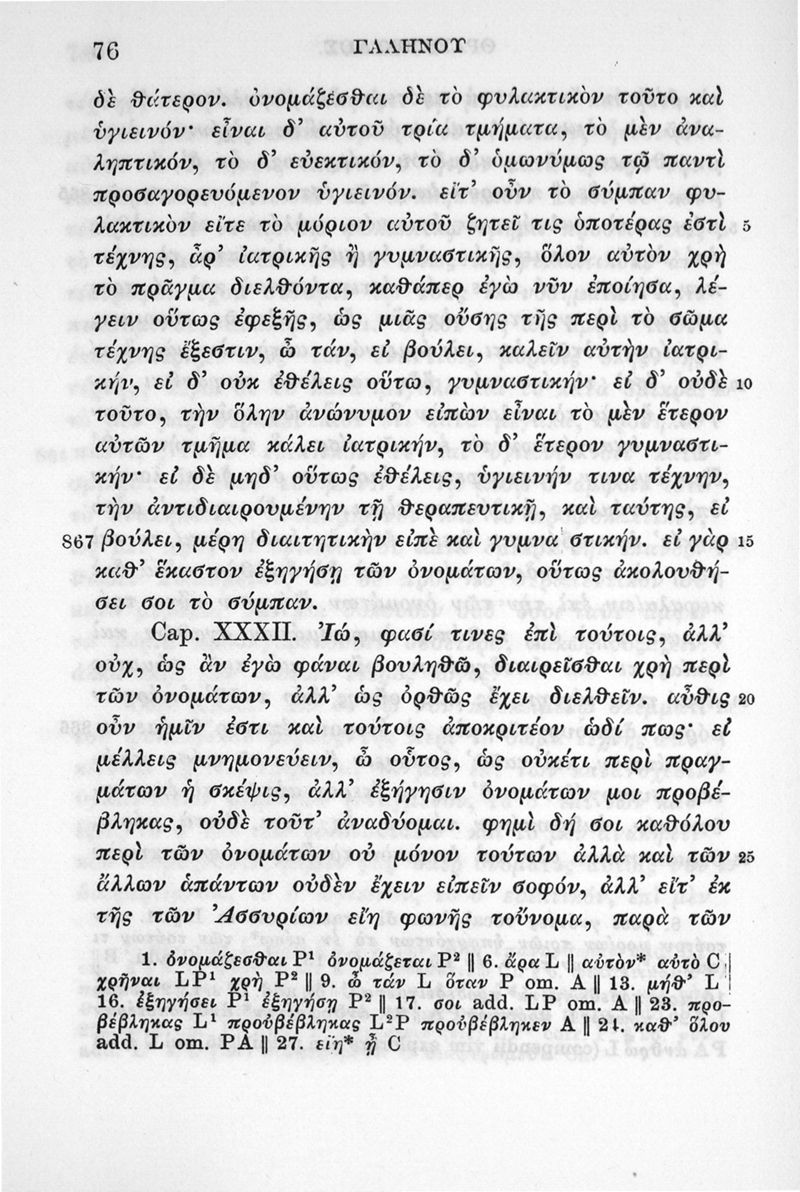 76 ΓΑΛΗΝΟΥ
δὲ θάτερον. ὀνομάζεσθαι δὲ τὸ φυλακτικὸν τοῦτο καὶ
ὑγιεινόν· εἶναι δ’ αὐτοῦ τρία τμήματα, τὸ μὲν ἀνα-
ληπτικόν, τὸ δ’ εὐεκτικόν, τὸ δ’ ὁμωνύμως τῷ παντὶ
προσαγορευόμενον ὑγιεινόν. εἴτ’ οὖν τὸ σύμπαν φυ-
λακτικὸν εἴτε τὸ μόριον αὐτοῦ ζητεῖ τις ὁποτέρας ἐστὶ 5
τέχνης, ἆρ’ ἰατρικῆς ἢ γυμναστικῆς, ὅλον αὐτὸν χρὴ
τὸ πρᾶγμα διελθόντα, καθάπερ ἐγὼ νῦν ἐποίησα, λέ-
γειν οὕτως ἐφεξῆς, ὡς μιᾶς οὔσης τῆς περὶ τὸ σῶμα
τέχνης ἔξεστιν, ὦ τάν, εἰ βούλει, καλεῖν αὐτὴν ἰατρι-
κήν, εἰ δ’ οὐκ ἐθέλεις οὕτω, γυμναστικήν· εἰ δ’ οὐδὲ 10
τοῦτο, τὴν ὅλην ἀνώνυμον εἰπὼν εἶναι τὸ μὲν ἕτερον
αὐτῶν τμῆμα κάλει ἰατρικήν, τὸ δ’ ἕτερον γυμναστι-
κήν· εἰ δὲ μηδ’ οὕτως ἐθέλεις, ὑγιεινήν τινα τέχνην,
τὴν ἀντιδιαιρουμένην τῇ θεραπευτικῇ, καὶ ταύτης, εἰ
867 βούλει, μέρη διαιτητικὴν εἰπὲ καὶ γυμνα|στικήν. εἰ γὰρ 15
καθ’ ἕκαστον ἐξηγήσῃ τῶν ὀνομάτων, οὕτως ἀκολουθή-
σει σοι τὸ σύμπαν.
Cap. XXXII. Ἰώ, φασί τινες ἐπὶ τούτοις, ἀλλ’
οὐχ, ὡς ἂν ἐγὼ φάναι βουληθῶ, διαιρεῖσθαι χρὴ περὶ
τῶν ὀνομάτων, ἀλλ’ ὡς ὀρθῶς ἔχει διελθεῖν. αὖθις 20
οὖν ἡμῖν ἐστι καὶ τούτοις ἀποκριτέον ὡδί πως· εἰ
μέλλεις μνημονεύειν, ὦ οὗτος, ὡς οὐκέτι περὶ πραγ-
μάτων ἡ σκέψις, ἀλλ’ ἐξήγησιν ὀνομάτων μοι προβέ-
βληκας, οὐδὲ τοῦτ’ ἀναδύομαι. φημὶ δή σοι καθόλου
περὶ τῶν ὀνομάτων οὐ μόνον τούτων ἀλλὰ καὶ τῶν 25
ἄλλων ἁπάντων οὐδὲν ἔχειν εἰπεῖν σοφόν, ἀλλ’ εἴτ’ ἐκ
τῆς τῶν Ἀσσυρίων εἴη φωνῆς τοὔνομα, παρὰ τῶν
1. ὀνομάζεσθαι P¹ ὀνομάζεται P² || 6. ἄρα L || αὐτὸν* αὐτὸ C ||
χρῆναι LP¹ χρὴ P² || 9. ὦ τάν L ὅταν P om. A || 13. μήθ’ L |
16. ἐξηγήσει P¹ ἐξηγήσῃ P² || 17. σοι add. LP om. A || 23. προ-
βέβληκας L¹ προὐβέβληκας L²P προὐβέβληκεν A || 24. καθ’ ὅλου
add. L om. PA || 27. εἴη* ᾖ C